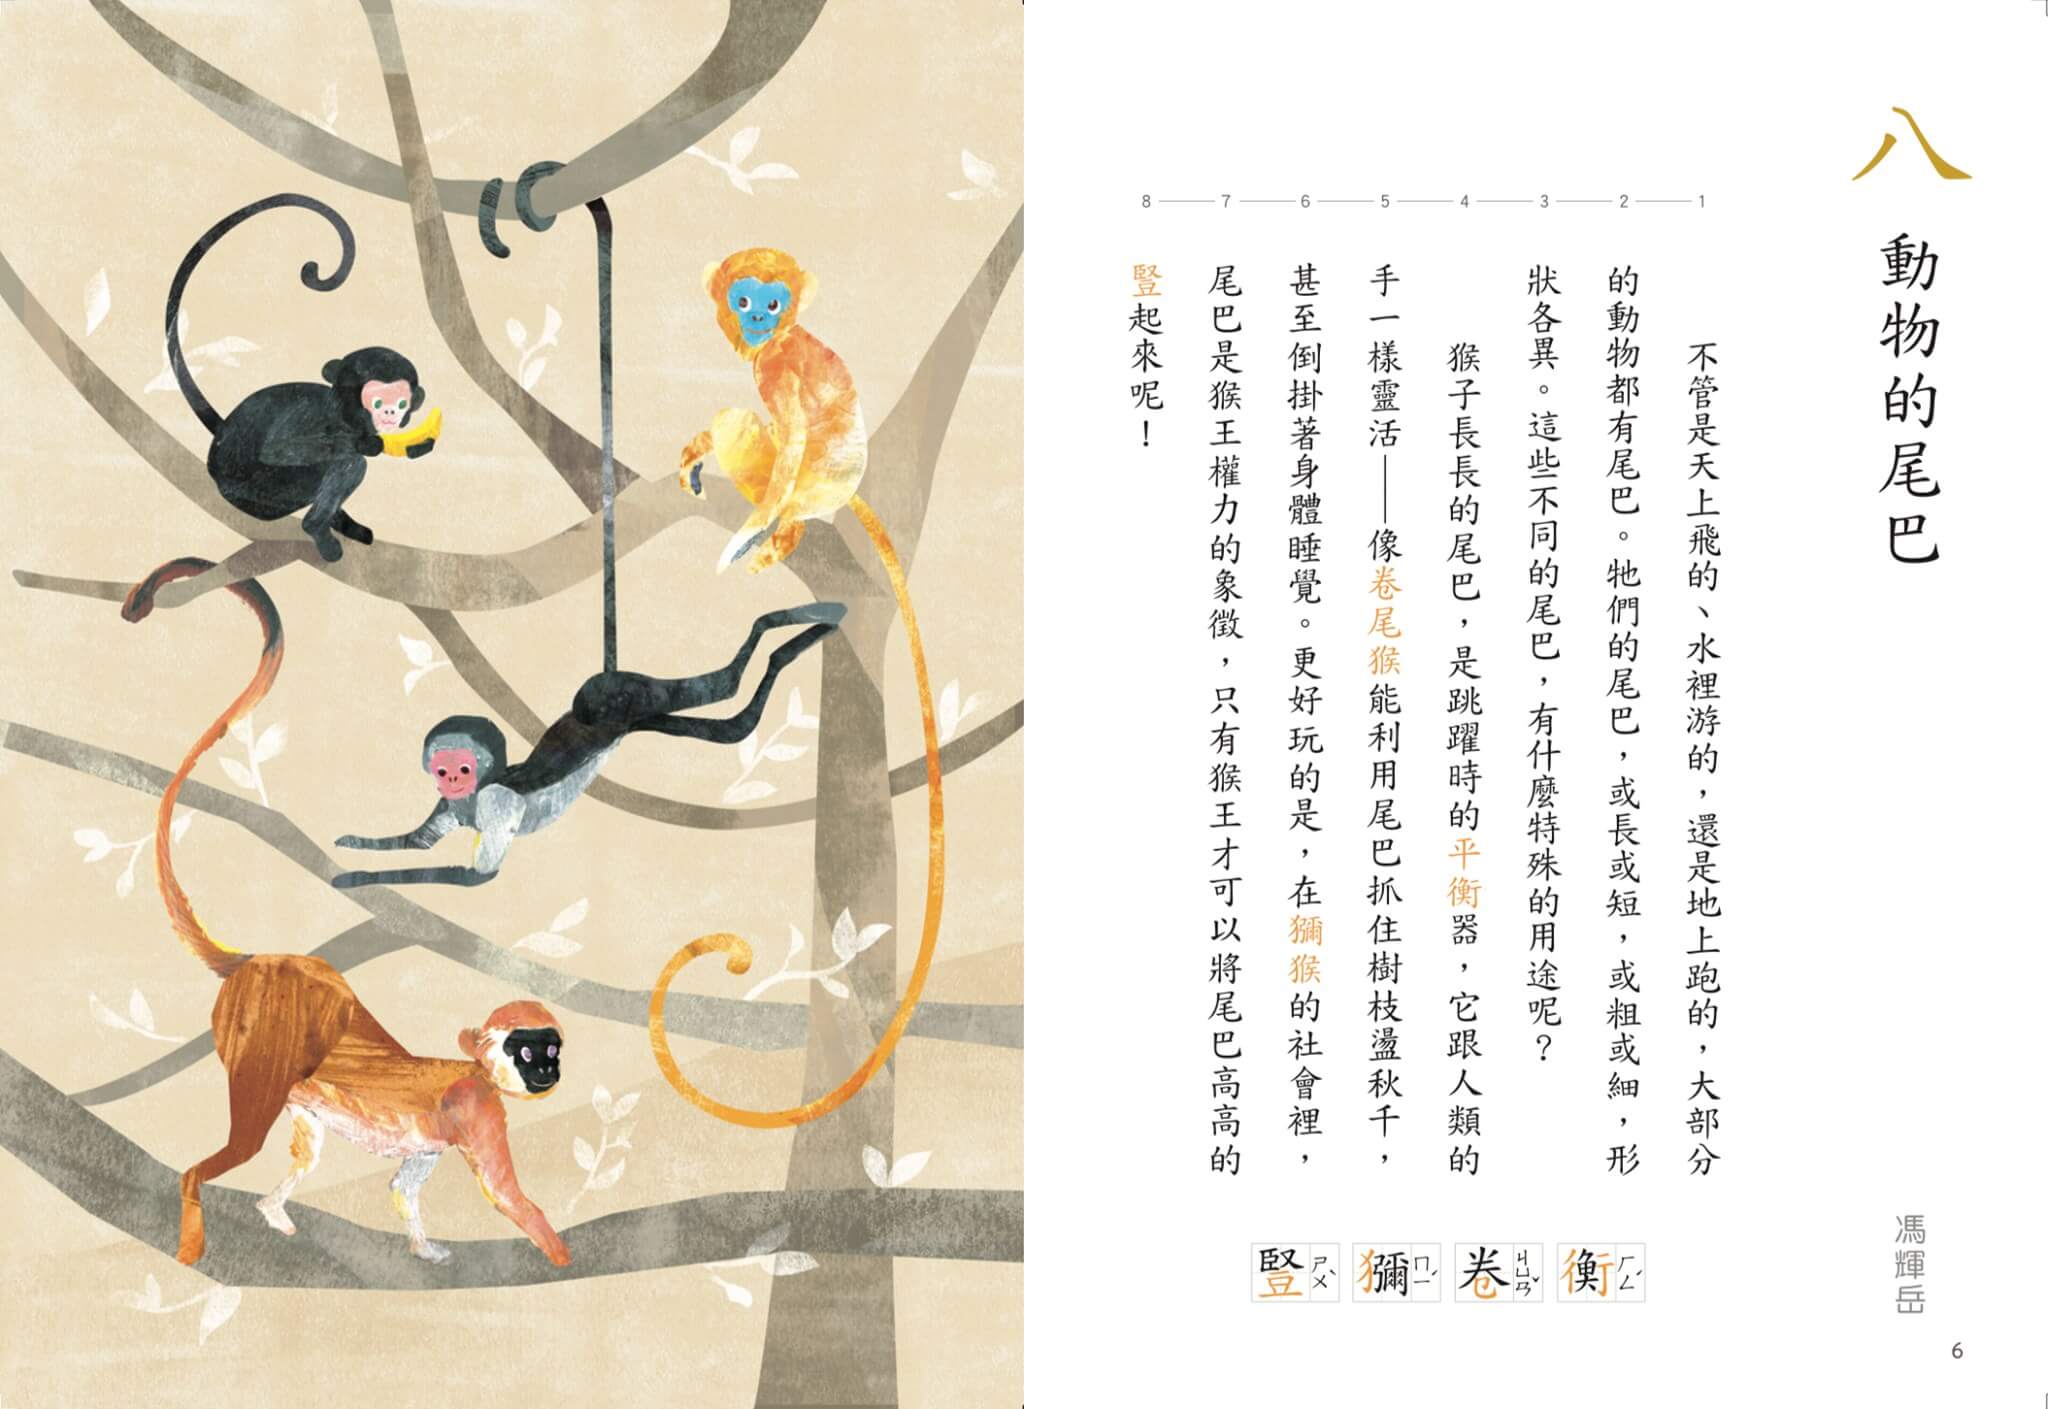 八 動物的尾巴
馮輝岳
1 2 3 4 5 6 7 8
不管是天上飛的、水裡游的，還是地上跑的，大部分
的動物都有尾巴。牠們的尾巴，或長或短，或粗或細，形
狀各異。這些不同的尾巴，有什麼特殊的用途呢？
猴子長長的尾巴，是跳躍時的平衡器，它跟人類的
手一樣靈活——像卷尾猴能利用尾巴抓住樹枝盪秋千，
甚至倒掛著身體睡覺。更好玩的是，在獼猴的社會裡，
尾巴是猴王權力的象徵，只有猴王才可以將尾巴高高的
豎起來呢！
衡 ㄏㄥˊ
卷 ㄐㄩㄢˇ
獼 ㄇㄧˊ
豎 ㄕㄨˋ
6